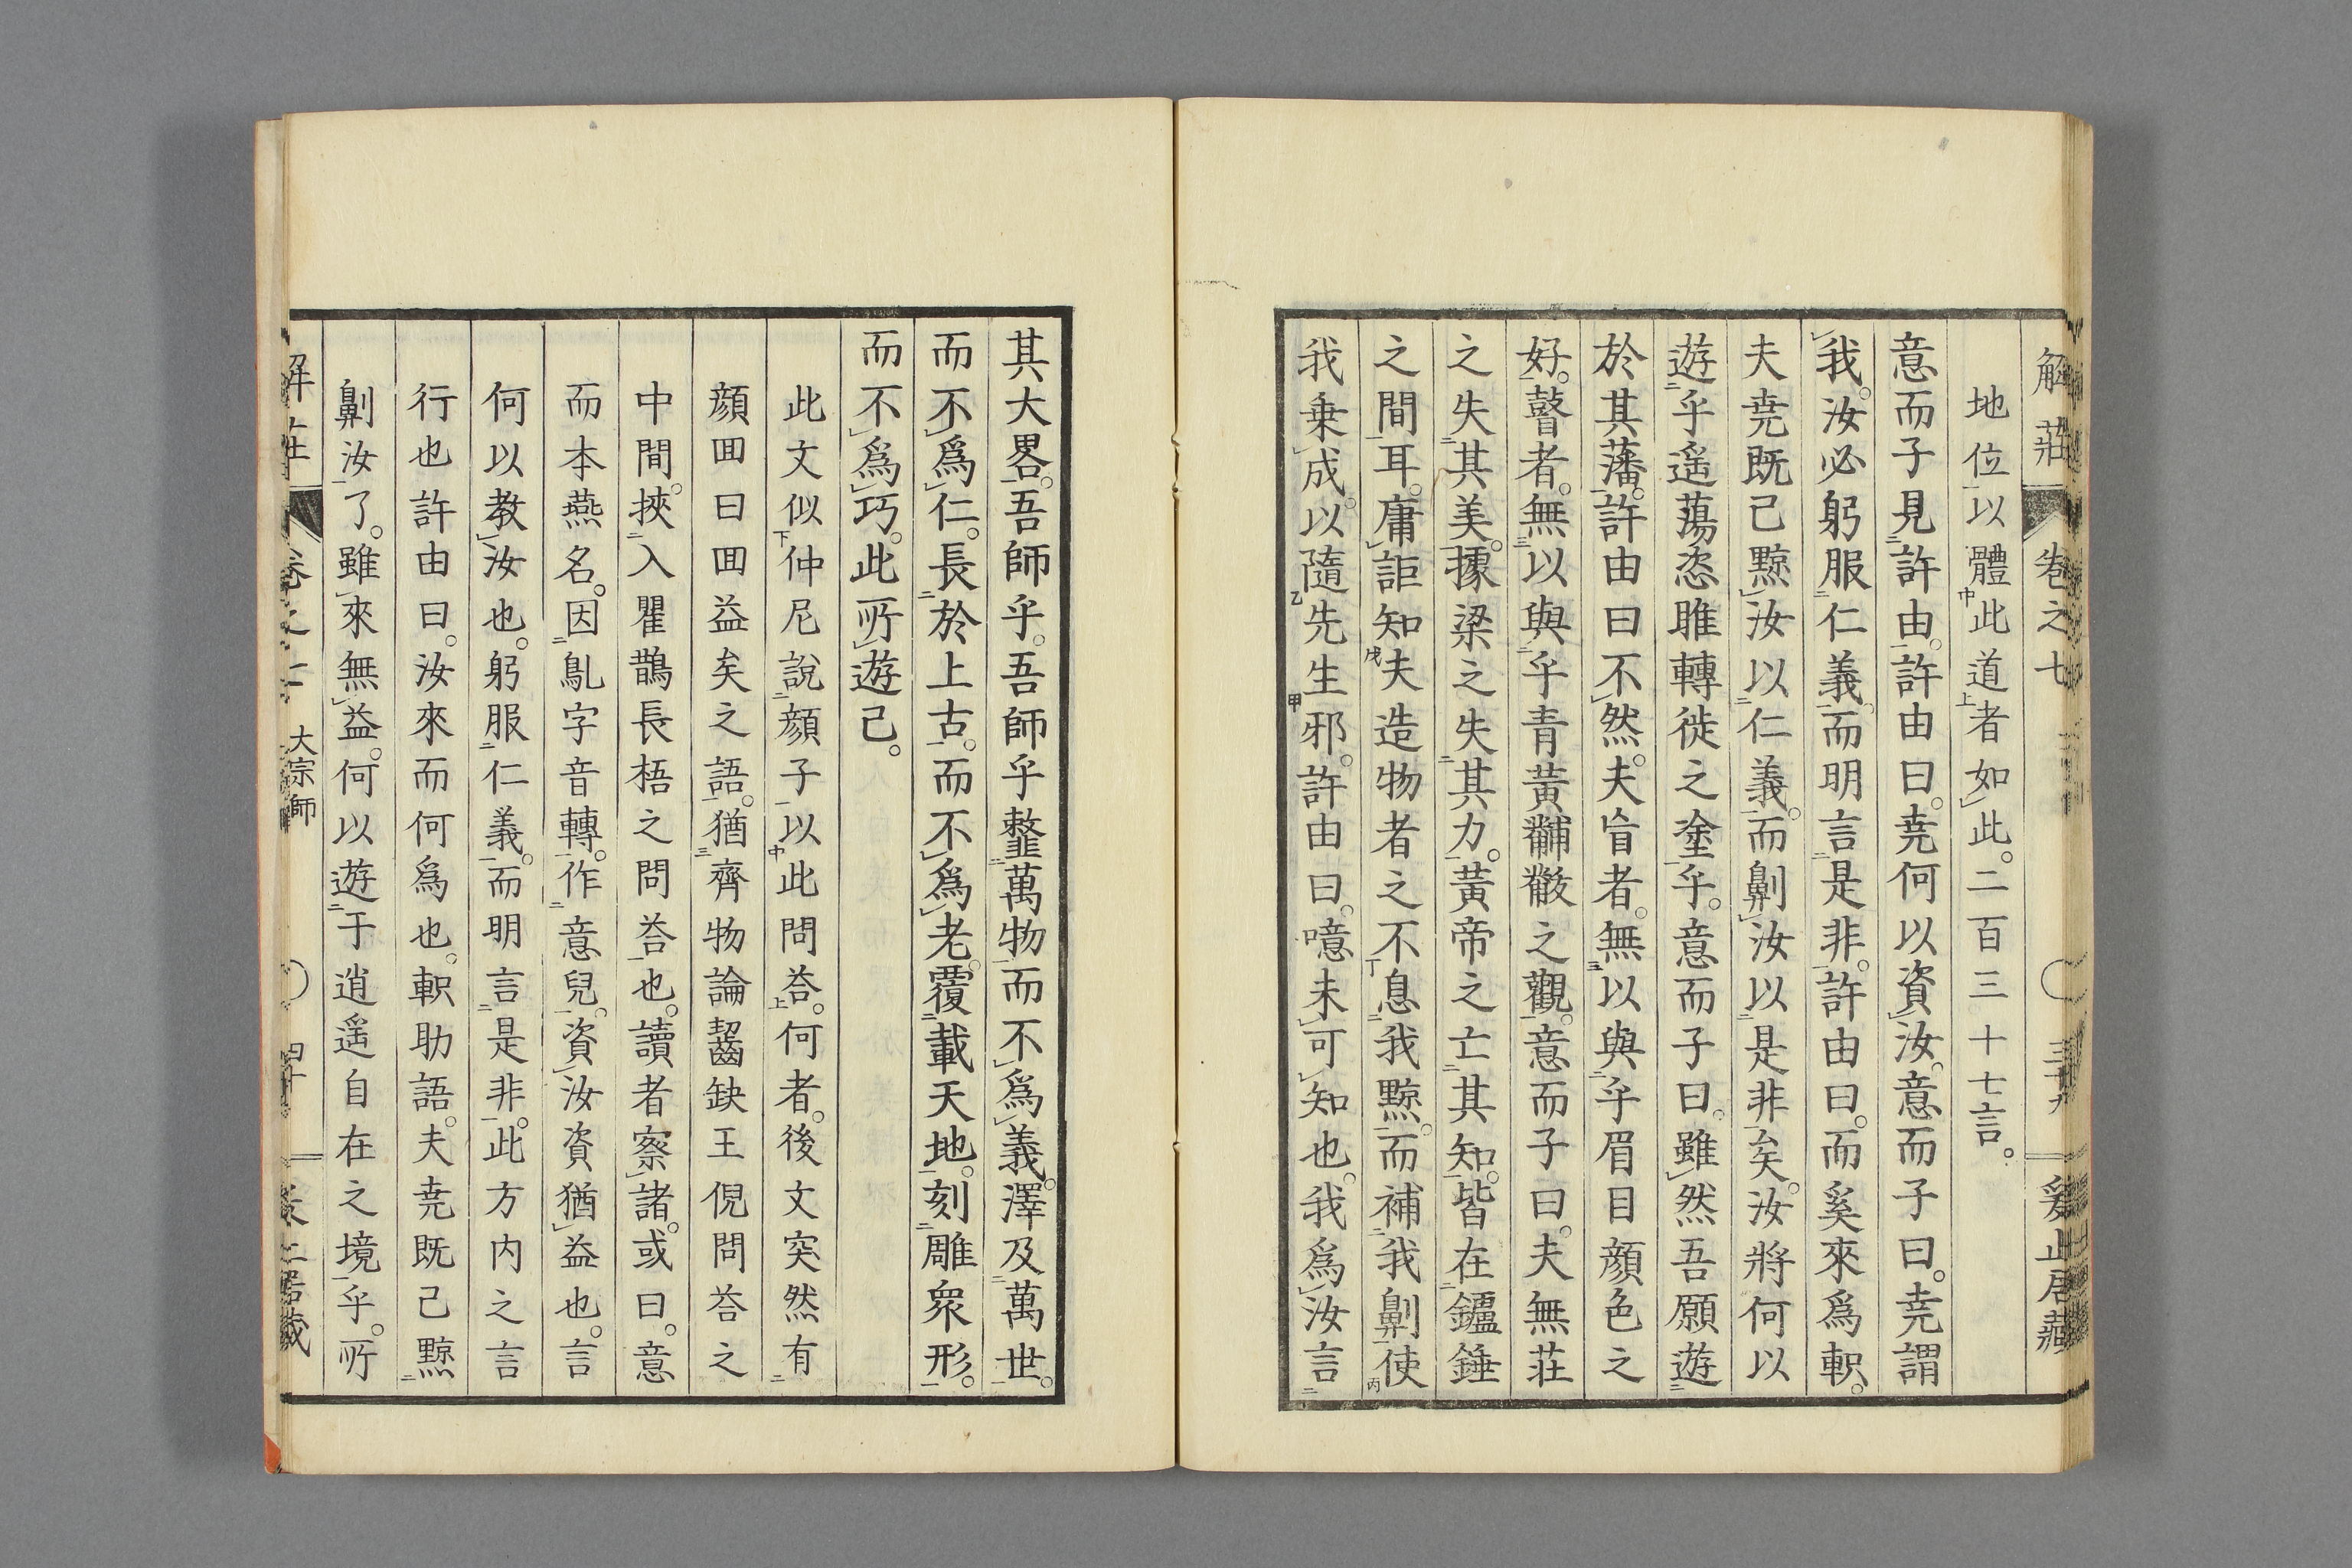 解莊 卷之七 三十九 爰止居藏
地位以體此道者如此。二百三十七言。
意而子見許由。許由曰。堯何以資汝。意而子曰。堯謂
我。汝必躬服仁義。而明言是非。許由曰。而奚來爲軹。
夫堯既已黥汝以仁義。而劓汝以是非矣。汝將何以
遊乎遥蕩恣睢轉徙之塗乎。意而子曰。雖然吾願遊
於其藩。許由曰不然。夫盲者。無以與乎眉目顔色之
好。瞽者。無以與乎青黃黼黻之觀。意而子曰。夫無莊
之失其美。據梁之失其力。黃帝之亡其知。皆在鑪錘
之間耳。庸詎知夫造物者之不息我黥。而補我劓使
我乗成。以隨先生邪。許由曰。噫未可知也。我爲汝言
其大畧。吾師乎。吾師乎䪠萬物而不爲義。澤及萬世。
而不爲仁。長於上古。而不爲老。覆載天地。刻雕衆形。
而不爲巧。此所遊已。
此文似仲尼說顔子以此問荅。何者。後文突然有
顔囬曰囬益矣之語。猶齊物論齧缺王倪問荅之
中間。挾入瞿鵲長梧之問荅也。讀者察諸。或曰。意
而本燕名。因鳦字音轉。作意兒。資汝資猶益也。言
何以教汝也。躬服仁義。而明言是非。此方内之言
行也許由曰。汝來而何爲也。軹助語。夫堯既已黥
劓汝了。雖來無益。何以遊于逍遥自在之境乎。所
解莊 卷之七 大宗師 四十 爰止居藏